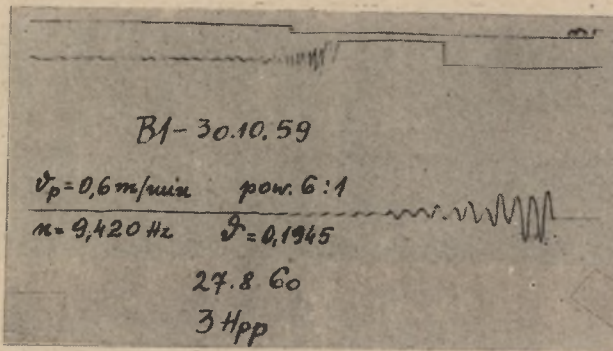 B1-30.10.59
vp=0,6m/min pow. 6:1
n=9,420 Hz ϑ=0,1945
27.8 60
3 Hpp